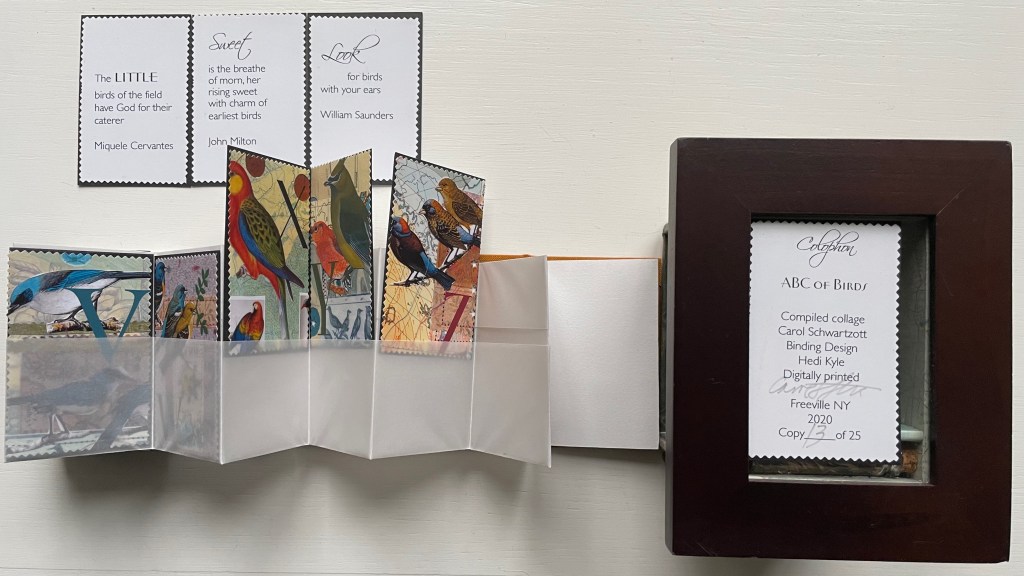 The LITTLE
birds of the field
have God for their
caterer
Miquele Cervantes
Sweet
is the breathe
of morn, her
rising sweet
with charm of
earliest birds
John Milton
Look
for birds
with your ears
William Saunders
V
X
Y
Z
Colophon
ABC OF BIRDS
Compiled collage
Carol Schwartzott
Binding Design
Hedi Kyle
Digitally printed
Freeville NY
2020
Copy 13 of 25